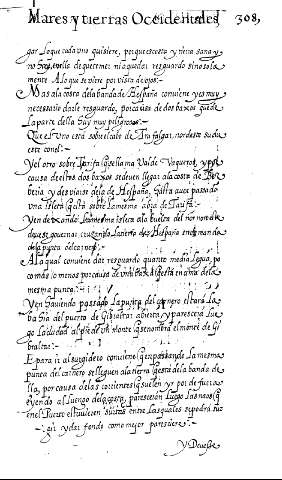 Mares y tierras Occidentales, 308,
gar Lo que cada vno quisiere, porque es costa y tierra sana y
no Hay en ella de que temer ni aquedar resguardo sino sola
mente A lo que se viere por vista de ojos:~
Mas a la costa de la banda de Hespaña conuiene y es muy
necesario darle resguardo, por causa de dos baxos que de
la parte della Hay muy peligrosos:~
Que el vno está sobre el cabo de Trafalgar, nordeste sudu
este con el:~
Y el otro sobre Tarifa q se llama Valde Vaqueros, y por
causa de estos dos baxos se deuen llegar a la costa de Ber
beria y desviarse de la de Hespaña, Hasta auer pasado
vna isleta q está sobre la misma de Tarifa:~
Y en dexando la misma isleta a la buelta del nornorde
deue governar cruzando la tierra de Hespaña en demanda
de la punta del carnero:~
A la qual conuiene dar resguardo quanto media legua, po
co más o menos por causa de q está en cima de la
misma punta:~
Y en Hauiendo pasado La punta del carnero estará La
baHia del puerto de Gibraltar abierta, y parescerá lue
go La ciudad al pie de vn monte q se nombra el monte de Gi
braltar:~
E para ir al surgidero conuiene q en pasando la misma
punta del carnero se lleguen a la tierra q está de la banda de
lla, por causa de las corrientes q suelen yr por de fuera
e yendo al luengo de la costa, pareserán Luego Las naos q
en el Puerto estuuieren surtas entre Las quales se podrá sur
gir y dar fondo como mejor paresciere:~
y Deuese